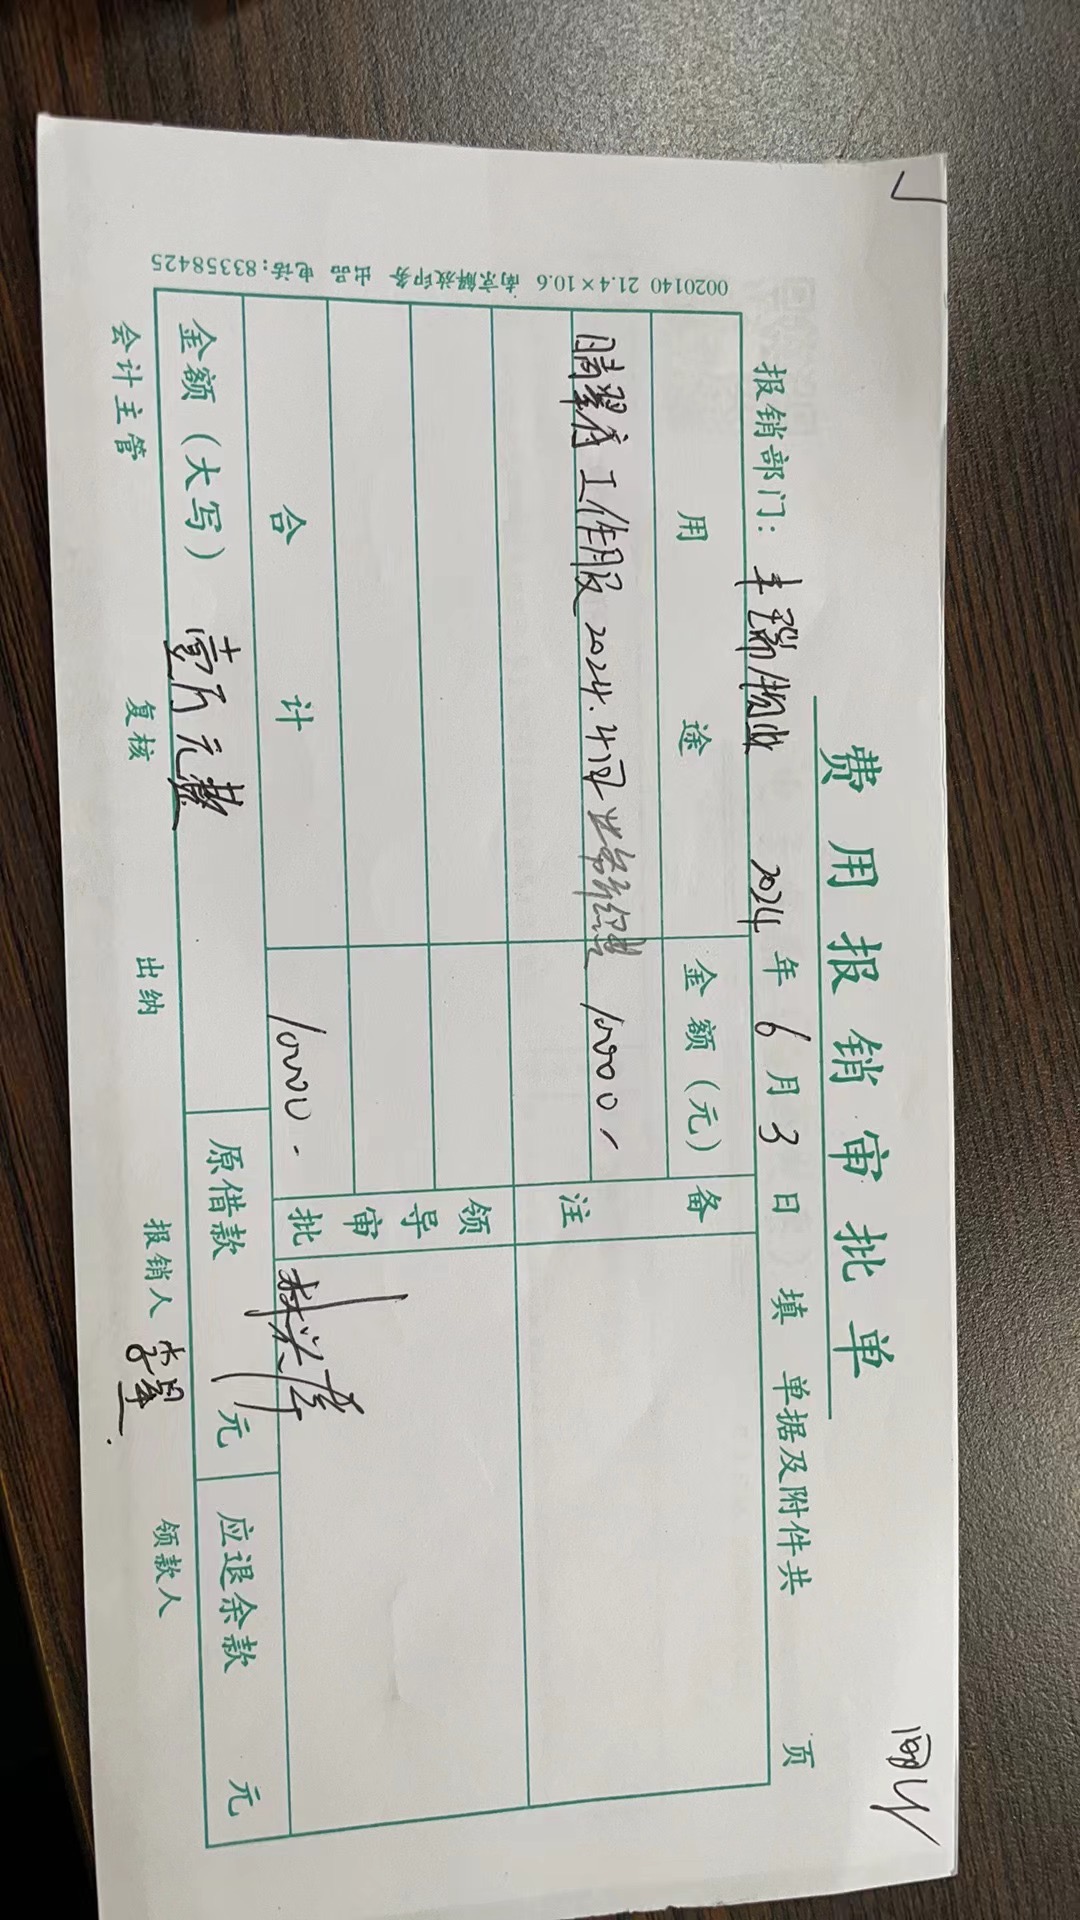 费用报销审批单
报销部门：丰瑞物业 2024年6月3日填 单据及附件共 页
用途 金额（元） 备注
晴翠府工作服2024.4月 10000
领导审批
合计 10000.-
金额（大写）壹万元整 原借款 元 应退余款 元
会计主管 复核 出纳 报销人 领款人
0020140 21.4×10.6 南京解放印务 出品 电话：83358425